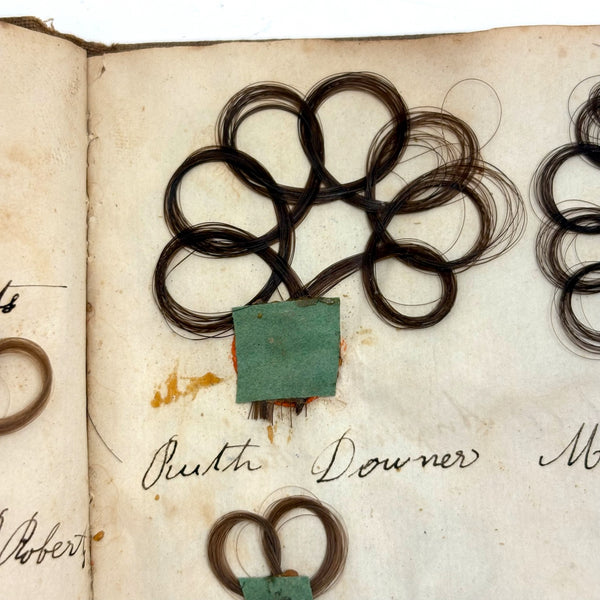 ts
Robert
Ruth Downer M